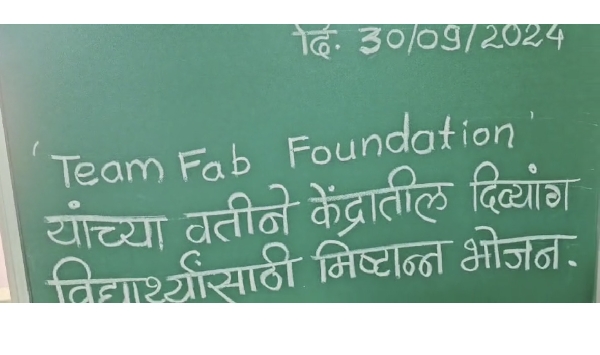 दि. 30/09/2024
'Team Fab Foundation'
यांच्या वतीने केंद्रातील दिव्यांग
विद्यार्थ्यांसाठी मिष्टान्न भोजन.